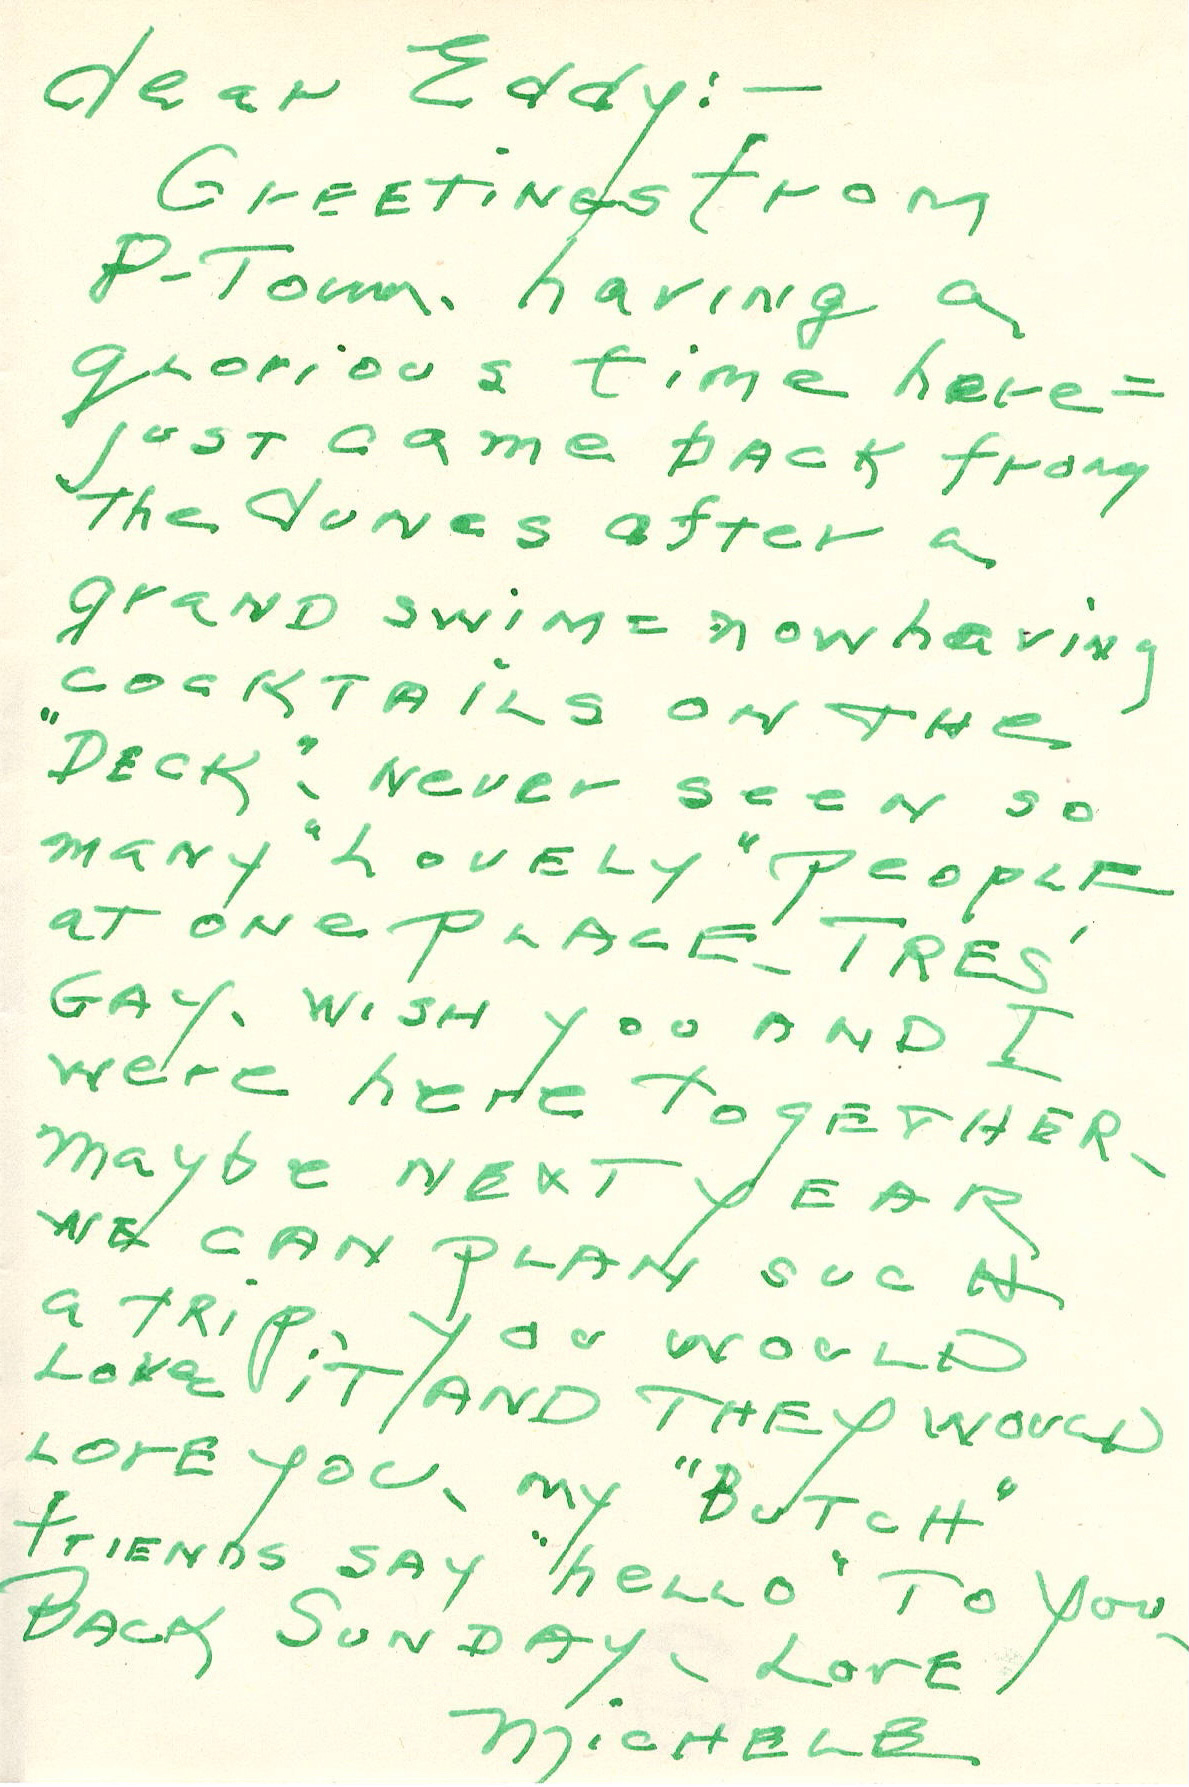 dear Eddy:—
Greetings from
P-Town. having a
glorious time here=
just came back from
the dunes after a
grand swim= now having
cocktails on the
"Deck". Never seen so
many "Lovely" people
at one place. TRES'
GAY. Wish you and I
were here together.
Maybe next year
we can plan such
a trip. You would
love it and they would
love you. my "Butch"
friends say "hello" to you.
Back Sunday. Love
Michele